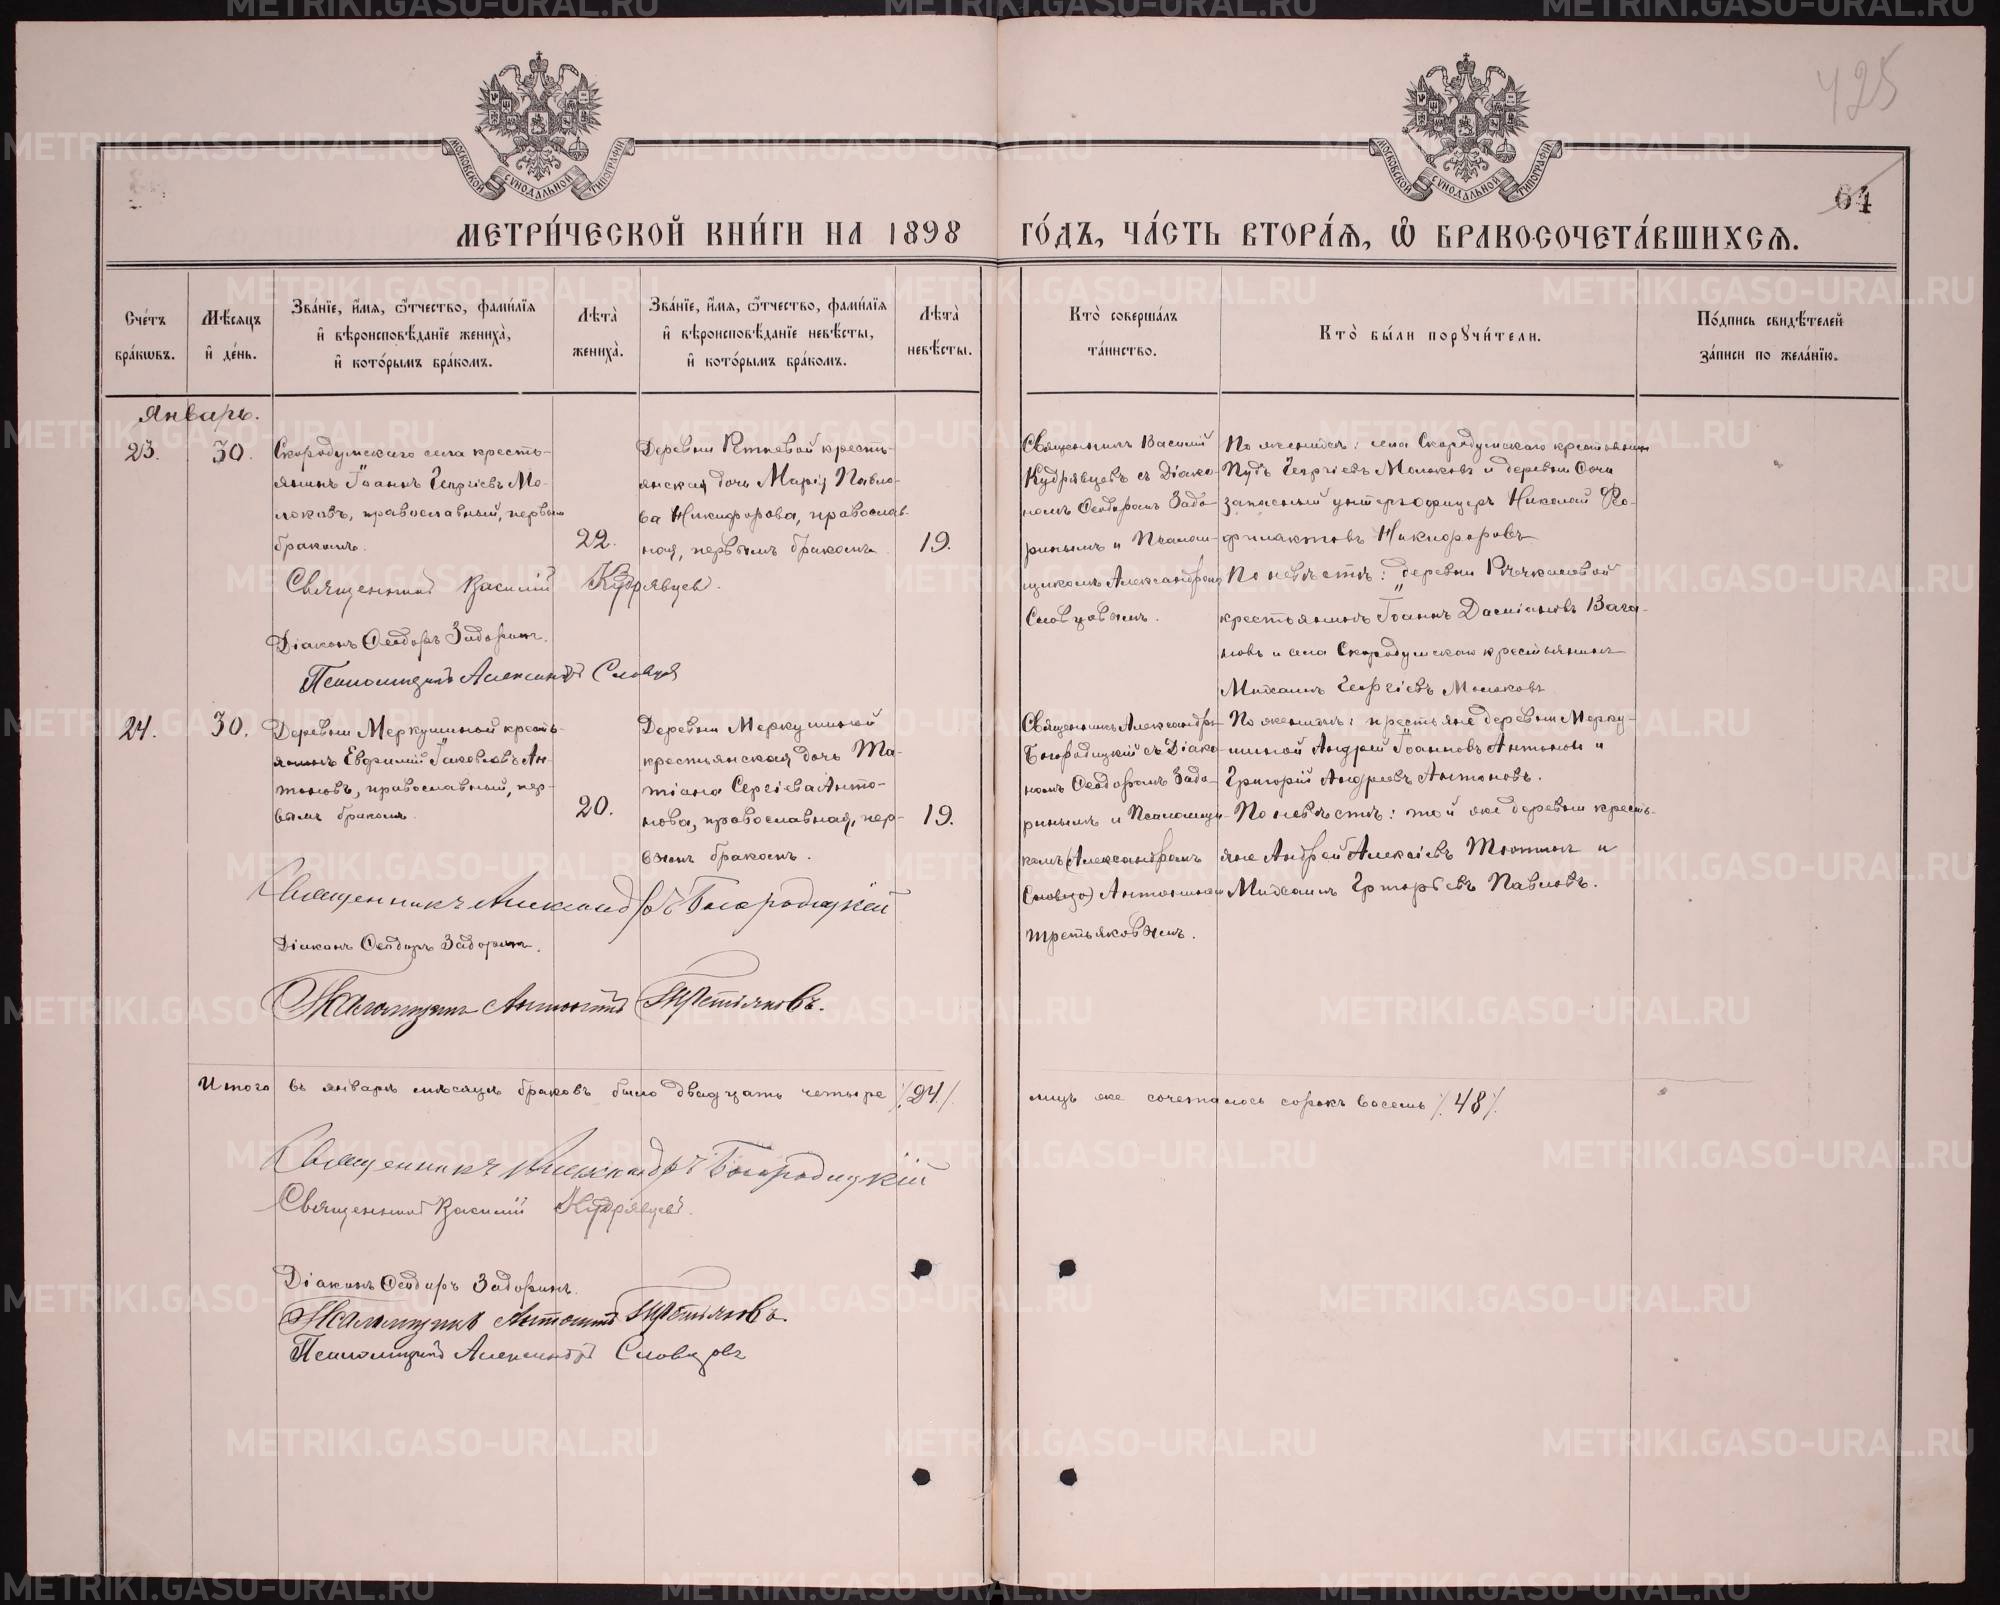 425
64
МОСКОВСКОЙ СѴНОДАЛЬНОЙ ТИПОГРАФІИ
МОСКОВСКОЙ СѴНОДАЛЬНОЙ ТИПОГРАФІИ
МЕТРИ́ЧЕСКОЙ КНИ́ГИ НА 1898 ГО́ДЪ, ЧА́СТЬ ВТОРА́Я, Ѽ БРАКОСОЧЕТА́ВШИХСЯ.
Сче́тъ бра́кѡвъ.
Мѣ́сяцъ и҆ де́нь.
Зва́нїе, и҆́мя, ѻ҆́тчество, фами́лїя и҆ вѣроисповѣ́данїе жениха̀, и҆ кото́рымъ бра́комъ.
Лѣ́та жениха̀.
Зва́нїе, и҆́мя, ѻ҆́тчество, фами́лїя и҆ вѣроисповѣ́данїе невѣ́сты, и҆ кото́рымъ бра́комъ.
Лѣ́та невѣ́сты.
Кто̀ соверша́лъ та́инство.
Кто̀ бы́ли порꙋчи́тели.
По́дпись свидѣ́телей за́писи по жела́нїю.
Январь.
23.
30.
Скородумскаго села кресть-
янинъ Іоаннъ Георгіевъ Мо-
локовъ, православный, первым
бракомъ.
22.
Деревни Ретневой кресть-
янская дочь Марія Павло-
ва Никифорова, православ-
ная, первымъ бракомъ
19.
Священникъ Василій
Кудрявцевъ съ Діако-
номъ Ѳеодоромъ Задо-
ринымъ и Псалом-
щикомъ Александромъ
Словцовымъ.
По женихѣ: села Скородумскаго крестьянин
Пудъ Георгіевъ Молоковъ и деревни Сочи
запасный унтеръ-офицеръ Николай Фе-
филактовъ Никифоровъ
По невѣстѣ: деревни Речкаловой
крестьянинъ Іоаннъ Даміановъ Вага-
новъ и села Скородумскаго крестьянинъ
Михаилъ Георгіевъ Молоковъ
Священникъ Василій Кудрявцев.
Діаконъ Ѳеодоръ Задоринъ.
Псаломщикъ Александръ Словцов
24.
30.
Деревни Меркушиной кресть-
янинъ Евфимій Іаковлевъ Ан-
тоновъ, православный, пер-
вымъ бракомъ
20.
Деревни Меркушиной
крестьянская дочь Та-
тіана Сергіева Анто-
нова, православная, пер-
вымъ бракомъ.
19.
Священникъ Александръ
Богородицкій съ Діако-
номъ Ѳеодоромъ Задо-
ринымъ и Псаломщи-
комъ (Александромъ
Словцо) Антоніемъ
Третьяковымъ.
По женихѣ: крестьяне деревни Мерку-
шиной Андрей Іоанновъ Антонов и
Григорій Андреевъ Антоновъ.
По невѣстѣ: той же деревни кресть-
яне Андрей Алексіевъ Тютинъ и
Михаилъ Григорьевъ Павловъ.
Священникъ Александръ Богородицкій
Діаконъ Ѳеодоръ Задоринъ.
Псаломщикъ Антоній Третьяковъ.
Итого въ январѣ мѣсяцѣ браковъ было двадцать четыре /24/
лицъ же сочеталось сорокъ восемь /48/.
Священникъ Александръ Богородицкій
Священникъ Василій Кудрявцев.
Діаконъ Ѳеодоръ Задоринъ.
Псаломщикъ Антоній Третьяковъ.
Псаломщикъ Александръ Словцовъ
METRIKI.GASO-URAL.RU